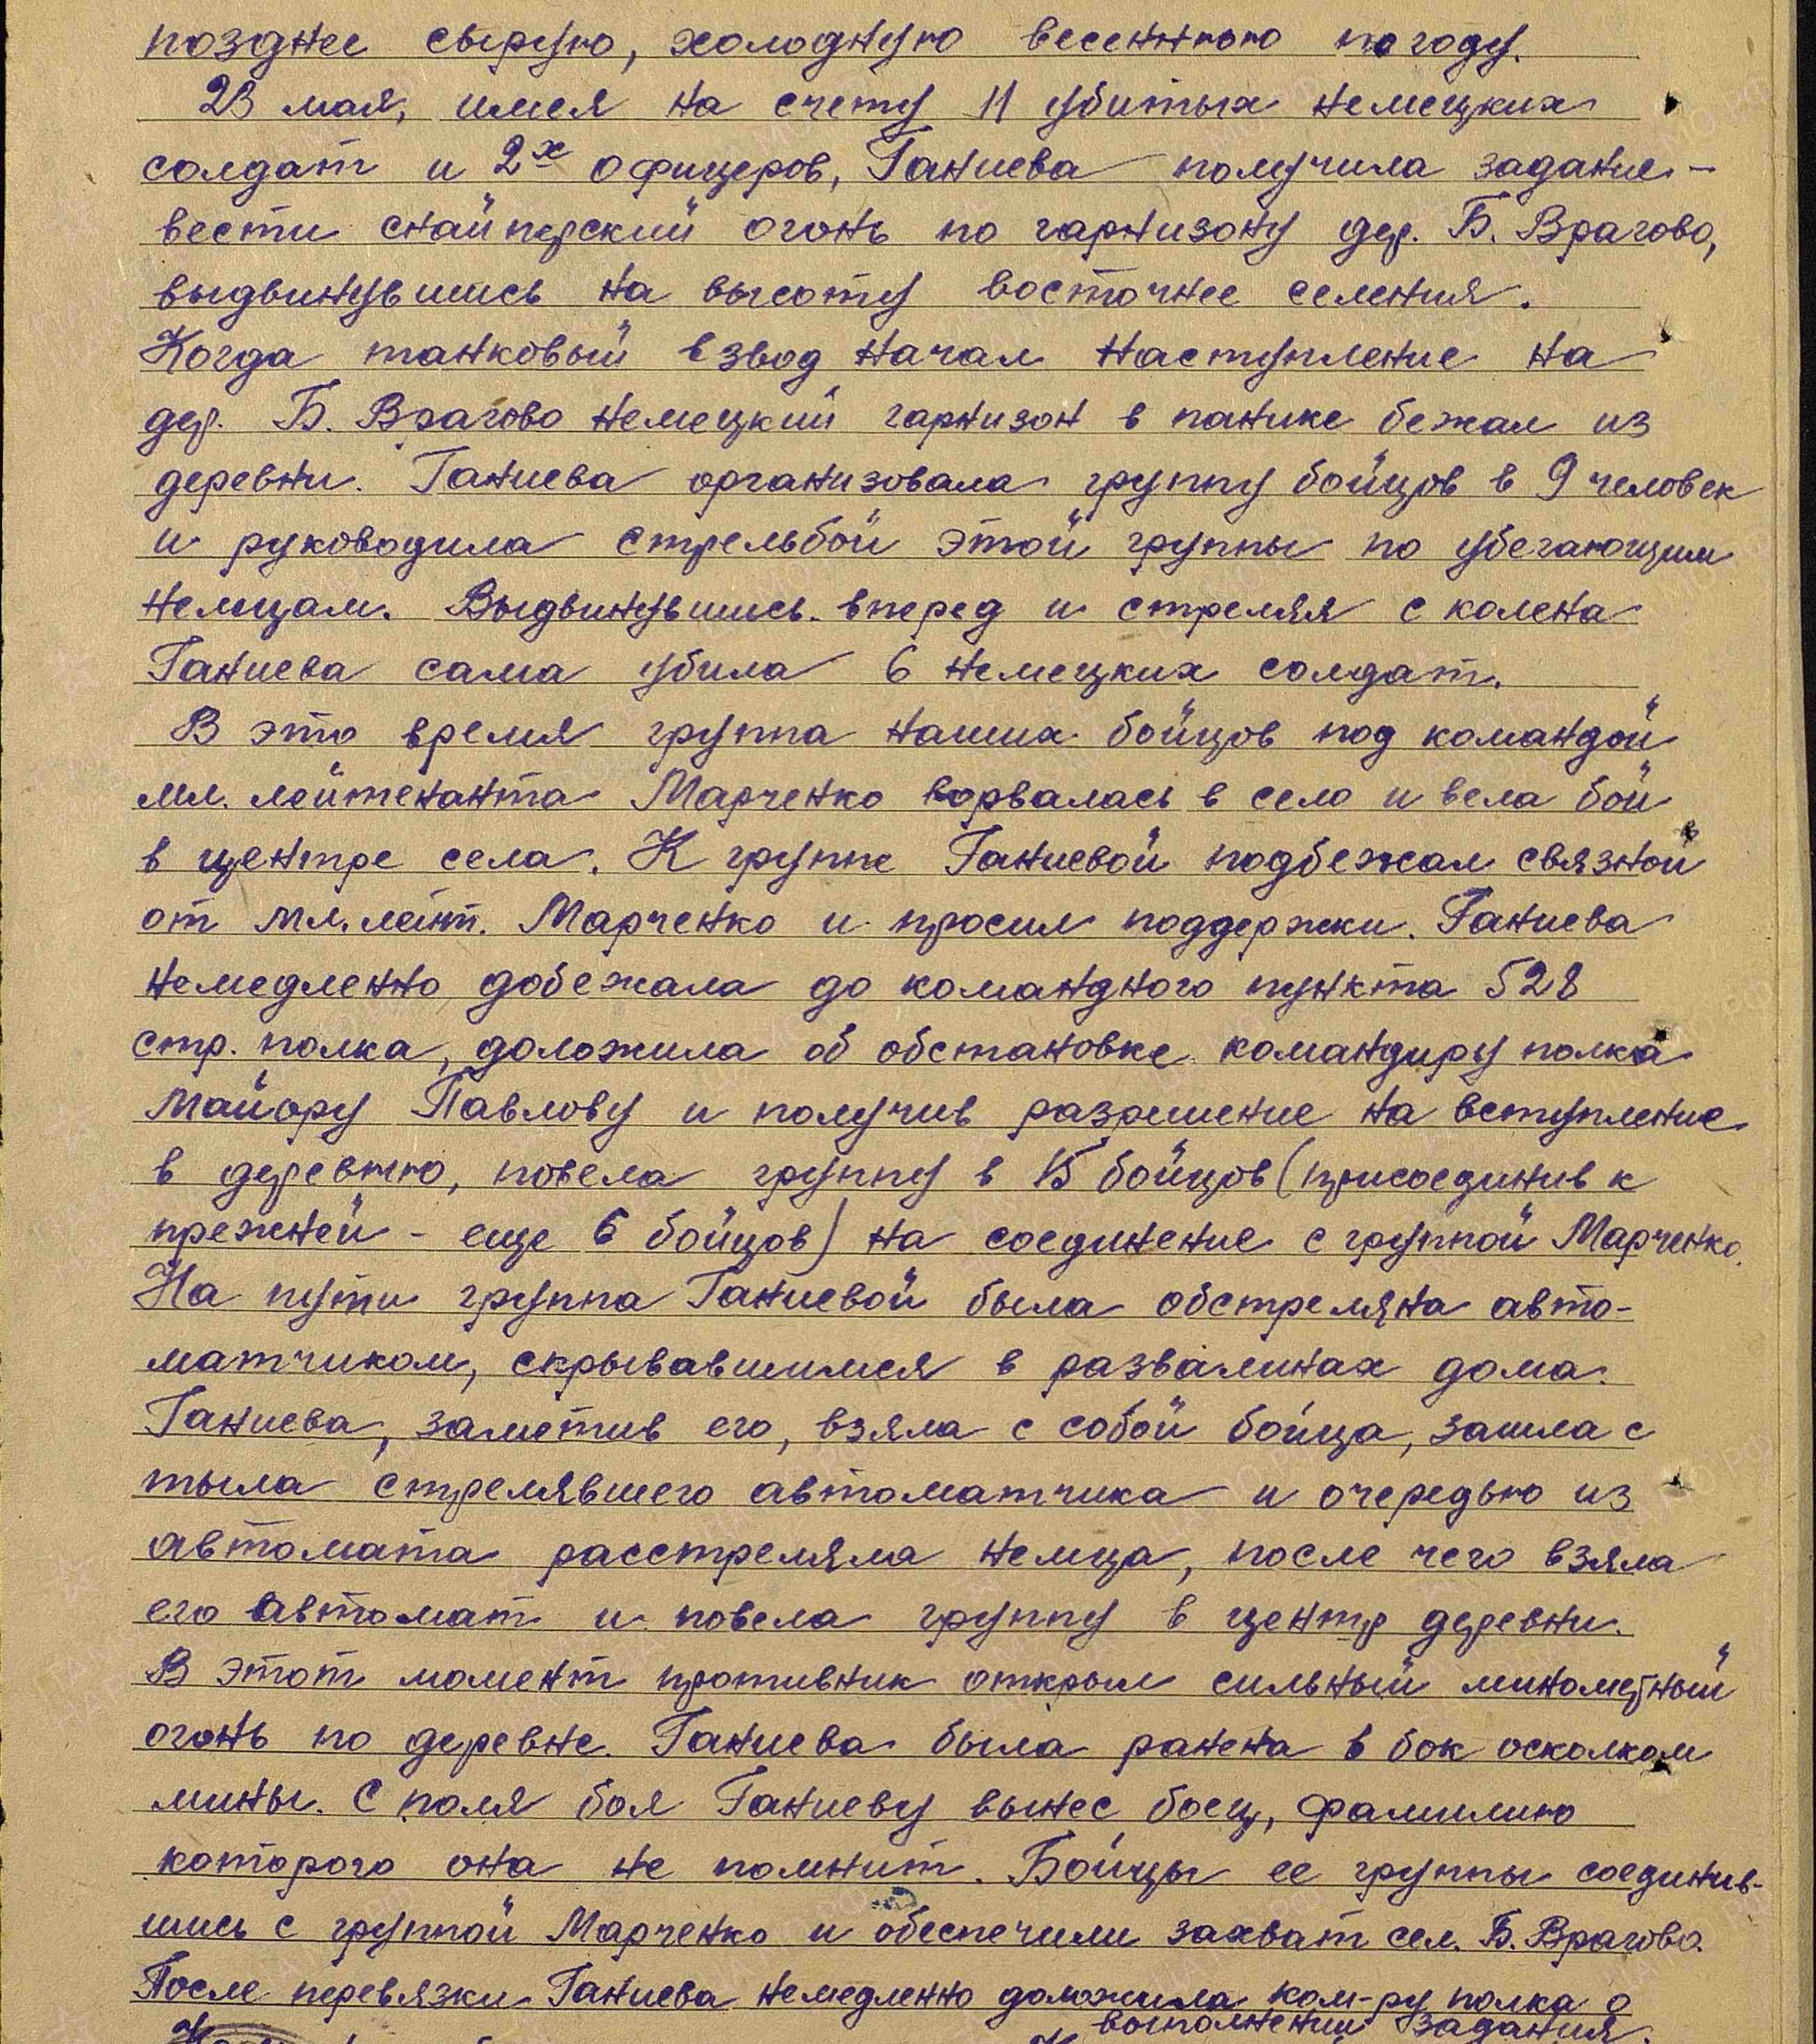 позднее сырую, холодную весеннюю погоду.
23 мая, имея на счету 11 убитых немецких
солдат и 2х офицеров, Ганиева получила задание -
вести снайперский огонь по гарнизону дер. Б. Врагово,
выдвинувшись на высоту восточнее селения.
Когда танковый взвод начал наступление на
дер. Б. Врагово немецкий гарнизон в панике бежал из
деревни. Ганиева организовала группу бойцов в 9 человек
и руководила стрельбой этой группы по убегающим
немцам. Выдвинувшись вперед и стреляя с колена
Ганиева сама убила 6 немецких солдат.
В это время группа наших бойцов под командой
мл. лейтенанта Марченко ворвалась в село и вела бой
в центре села. К группе Ганиевой подбежал связной
от мл. лейт. Марченко и просил поддержки. Ганиева
немедленно добежала до командного пункта 528
стр. полка, доложила об обстановке командиру полка
майору Павлову и получив разрешение на вступление
в деревню, повела группу в 15 бойцов (присоединив к
прежней - еще 6 бойцов) на соединение с группой Марченко.
На пути группа Ганиевой была обстреляна авто-
матчиком, скрывавшимся в развалинах дома.
Ганиева, заметив его, взяла с собой бойца, зашла с
тыла стрелявшего автоматчика и очередью из
автомата расстреляла немца, после чего взяла
его автомат и повела группу в центр деревни.
В этот момент противник открыл сильный минометный
огонь по деревне. Ганиева была ранена в бок осколком
мины. С поля боя Ганиеву вынес боец, фамилию
которого она не помнит. Бойцы ее группы соединив-
шись с группой Марченко и обеспечили захват сел. Б. Врагово.
После перевязки Ганиева немедленно доложила ком-ру полка о
выполнении задания.